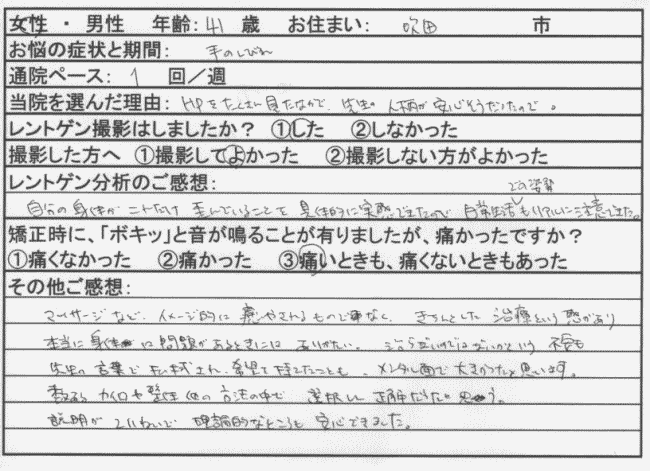 女性 ・ 男性 年齢: 41 歳 お住まい: 吹田 市
お悩の症状と期間: 手のしびれ
通院ペース: 1 回／週
当院を選んだ理由: HPをたくさん見たなかで、先生の人柄が安心そうだったので。
レントゲン撮影はしましたか？ ①した ②しなかった
撮影した方へ ①撮影してよかった ②撮影しない方がよかった
レントゲン分析のご感想:
での姿勢
自分の身体がこれだけ歪んでいることを具体的に実感できたので日常生活もリアルに注意できた。
矯正時に、「ボキッ」と音が鳴ることが有りましたが、痛かったですか？
①痛くなかった ②痛かった ③痛いときも、痛くないときもあった
その他ご感想:
マッサージなど、イメージ的に癒やされるものではなく、きちんとした治療という感があり
本当に身体に問題があるときには ありがたい。治らないのではないかという不安も
先生の言葉で 払拭され、希望を持てたことも、メンタル面で大きかったと思います。
カイロや整体 他の方法の中で 選択し 正解だったと思う。
説明が ていねいで 理論的なところも 安心できました。